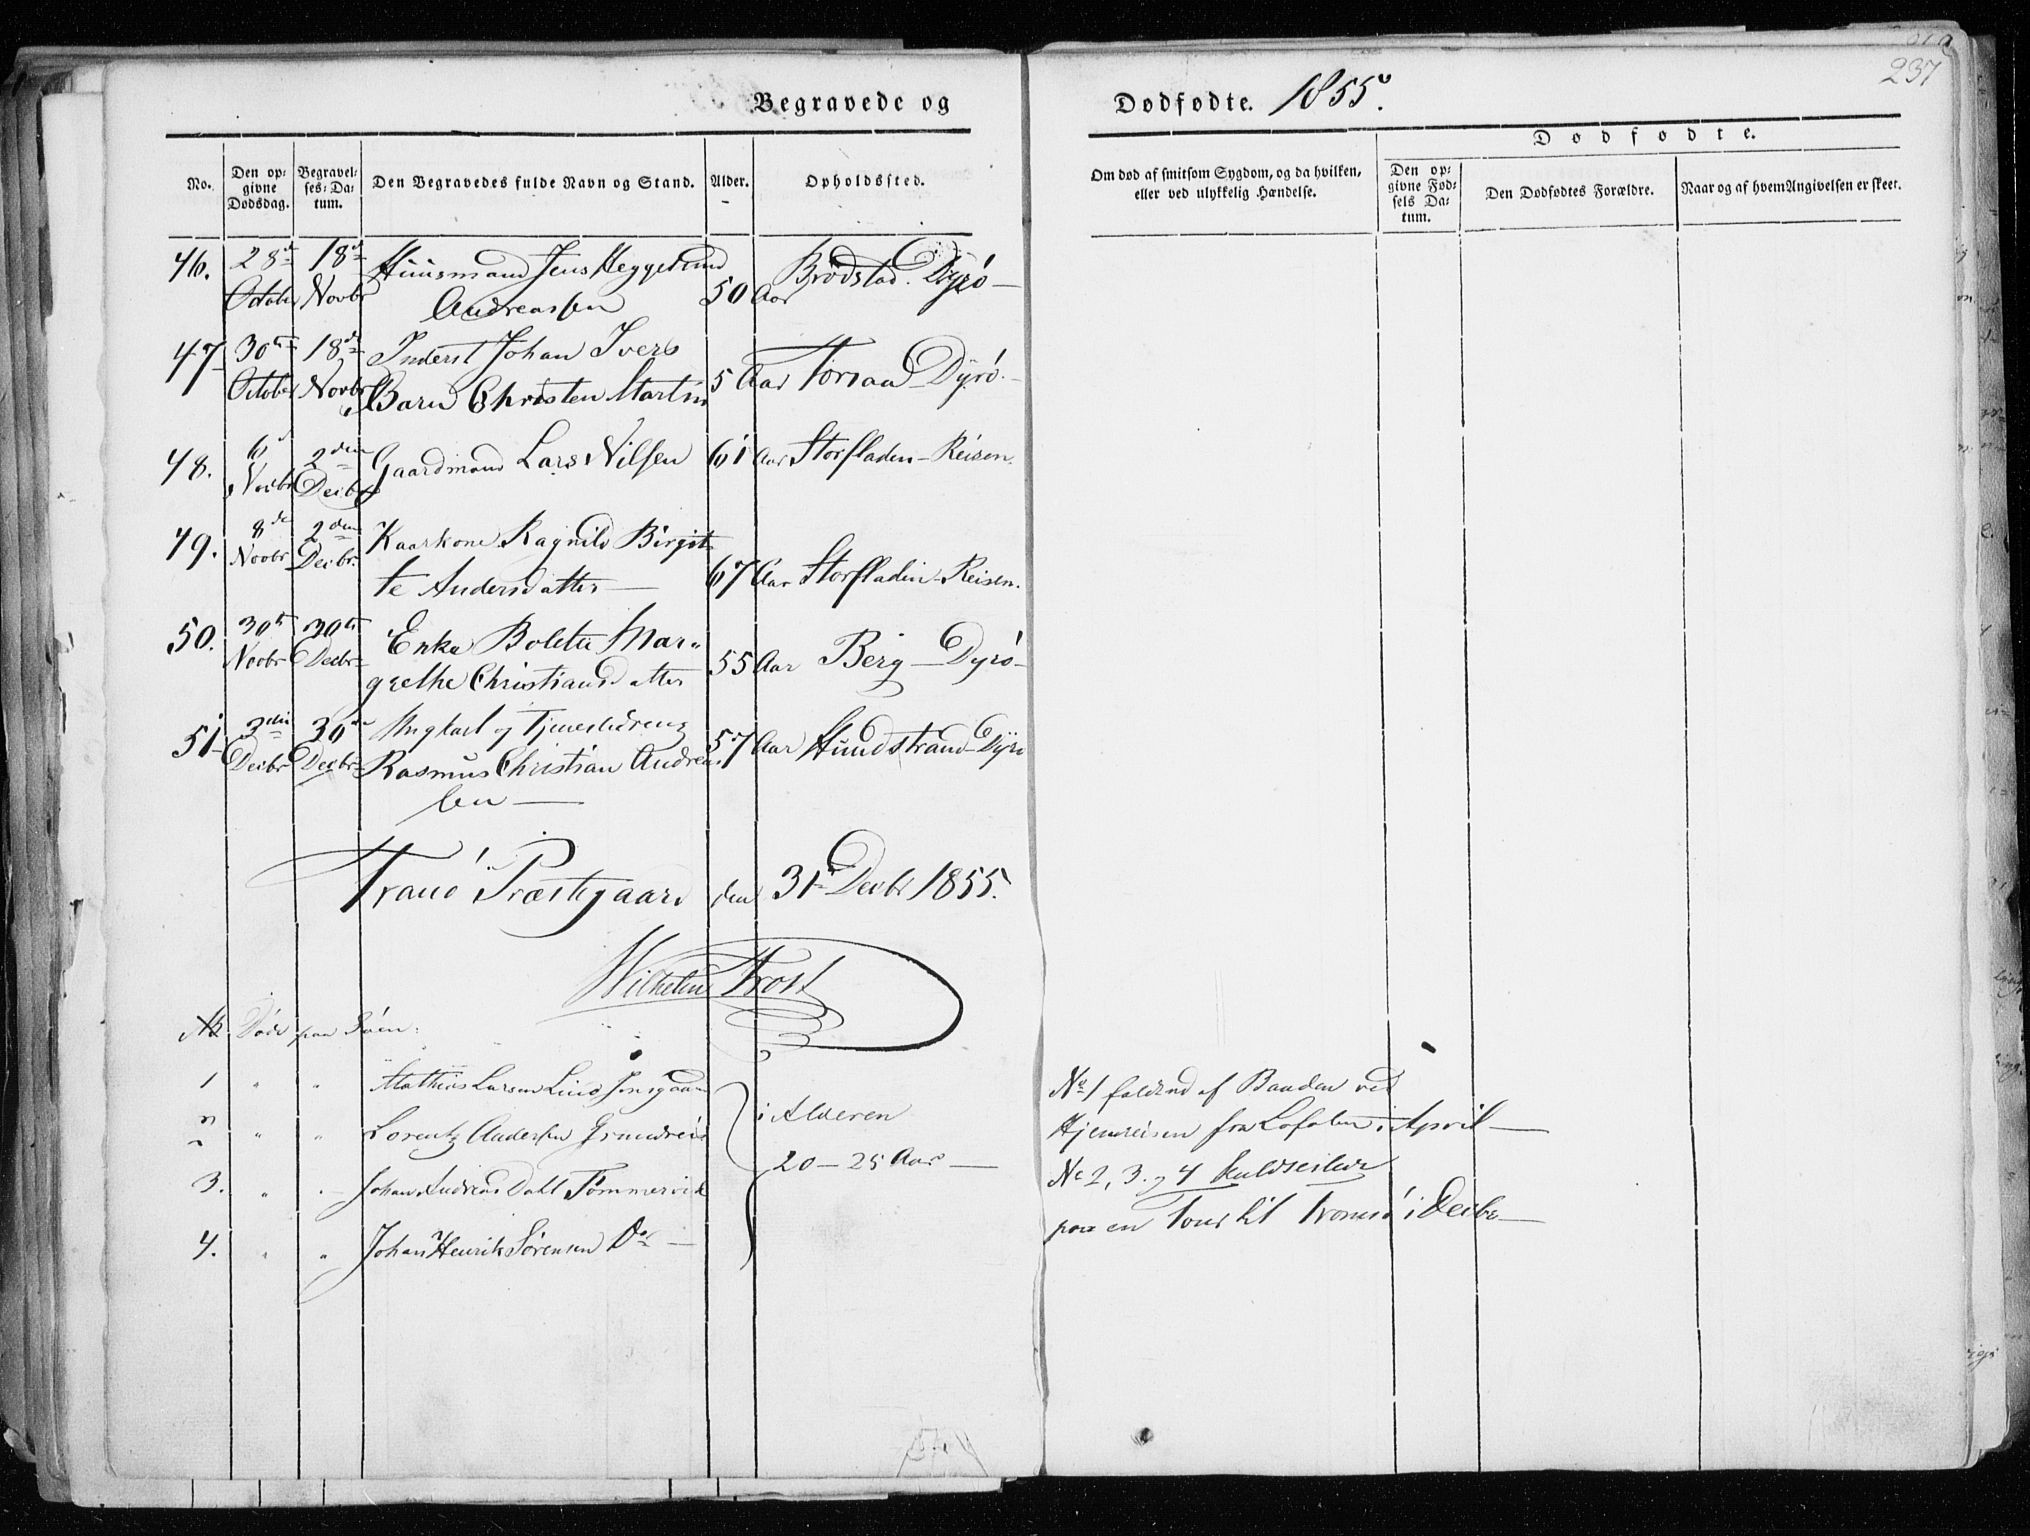 237
Begravede og
Dødfødte. 1855.
Dødfødte.
No.
Den op-
givne
Dødsdag.
Begravel-
ses-Da-
tum.
Den Begravedes fulde Navn og Stand.
Alder.
Opholdssted.
Om død af smitsom Sygdom, og da hvilken,
eller ved ulykkelig Hændelse.
Den op-
givne Fød-
sels Da-
tum.
Den Dødfødtes Forældre.
Naar og af hvem Angivelsen er skeet.
46. 28de 18de Huusmand Jens Heggelund Brøstad. Dyrø
October Novbr Andreassen 50 Aar
47 30te 18de Inderst Johan Ivers
October Novbr Barn Christen Martin 5 Aar Torsaa Dyrø
48. 6 2den Gaardmand Lars Nilsen 61 Aar Storfladen - Reisen.
Novbr Decbr
49. 8de 2den Kaarkone Ragnild Birgit
Novbr Decbr. te Andersdatter 67 Aar Storfladen - Reisen.
50. 30te 30te Enke Bolette Mar-
Novbr Decbr grethe Christiansdatter 55 Aar Berg - Dyrø
51 3die 30te Ungkarl og Tjenestedreng
Decbr Decbr Rasmus Christian Andreas 57 Aar Hundstrand Dyrø
sen
Tranø Præstegaard den 31te Decbr 1855.
Wilhelm Frost
Nb Døde paa Søen:
1 " " Mathias Larsen Lind
2 " " Lorentz Andersen
3. " " Johan Andreas Dahl Tømmervik
4. " " Johan Henrik Sørensen Do
i Alderen
20 - 25 Aar
No 1 faldend af Baaden ved
Hjemreisen fra Lofoten i April
No 2, 3 og 4 kuldseilede
paa en Tour til Tromsø i Decbr